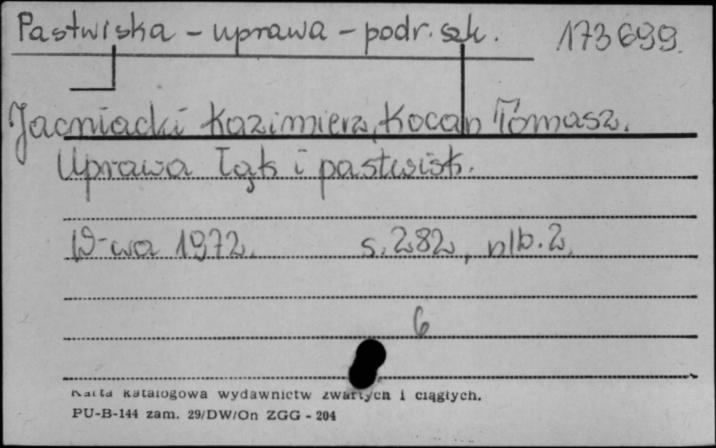 Pastwiska - uprawa - podr. szk. 173699.
Jacniacki Kazimierz, Kocan Tomasz.
Uprawa łąk i pastwisk.
W-wa 1972. s. 282, nlb. 2.
6
Karta katalogowa wydawnictw zwartych i ciągłych.
PU-B-144 zam. 29/DW/On ZGG - 204